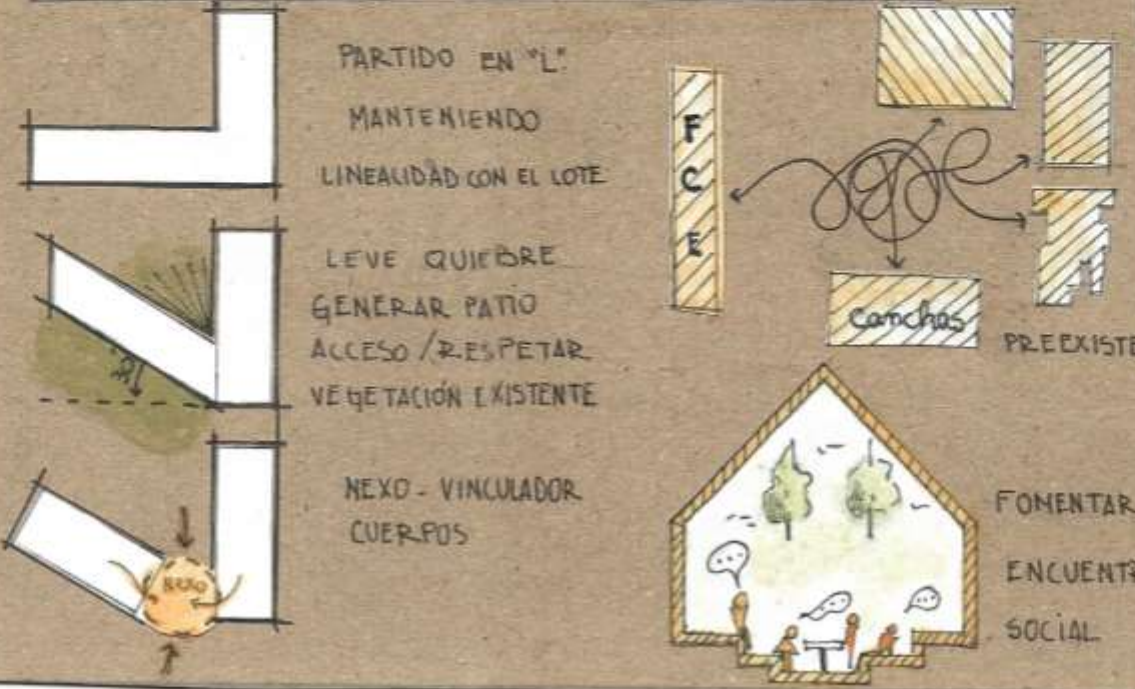 PARTIDO EN "L".
MANTENIENDO
LINEALIDAD CON EL LOTE
LEVE QUIEBRE
GENERAR PATIO
ACCESO / RESPETAR
VEGETACIÓN EXISTENTE
NEXO - VINCULADOR
CUERPOS
NEXO
F
C
E
canchas
PREEXISTE
FOMENTAR
ENCUENTR
SOCIAL